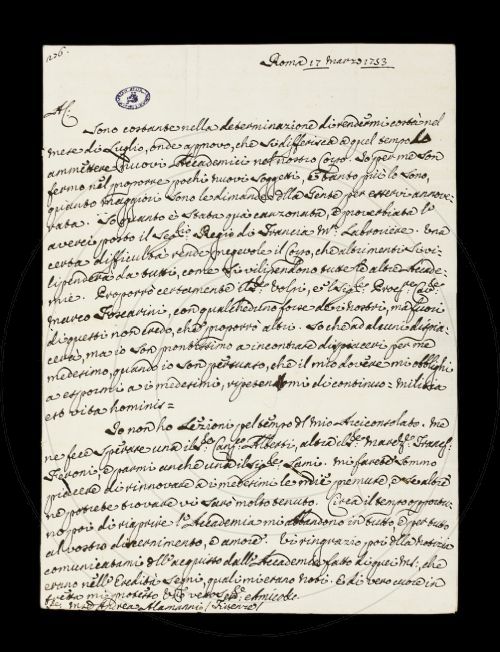 n.º 6.
Roma 17 Marzo 1753
Al.
Sono costante nella determinazione di rendermi costà nel
mese di Luglio, onde approvo, che si differisca a quel tempo lo
ammettere nuovi Accademici nel nostro Corpo. Io per me son
fermo nel proporre pochi nuovi Soggetti, e tanto più lo sono,
quanto maggiori sono le dimande della Gente per esservi annove-
rata. Io quanto è stata quà canzonata, e proverbiata l'
averci posto il Seg.rio Regio di Francia M.r Labroviere. Una
certa difficultà rende pregevole il Corpo, che altrimenti si vi-
lipenderà da tutti, come si vilipendono tutte le altre Accade-
mie. Proporrò certamente il Volpi, e il Sig.r Proc.re Cav.re
Marco Foscarini, con qualcheduno forse de i nostri, ma fuori
di questi non credo, che proporrò altri. So che ad alcuni dispia-
cerà, ma io son prontissimo a incontrare dispiaceri per me
medesimo, quando io son persuaso, che il mio dovere mi obblighi
a espormi a i medesimi, ripetendomi di continuo = militia
est vita hominis =
Io non ho Lezioni pel tempo del mio Arciconsolato. Me
ne fece sperare una il Sig. Can.co Alberti, altra il Sig. March.e Franc.o
Feroni, e parmi anche una il Sig.r Lami. Mi farete sommo
piacere di rinnovare a i medesimi le mie premure, e se altre
ne potrete trovare vi sarò molto tenuto. Circa il tempo opportu-
no poi di riaprire l'Accademia mi abbandono in tutto, e per tutto
al vostro discernimento, e amore. Vi ringrazio poi della notizia
comunicatami dell'acquisto dall'Accademia fatto di quei MS., che
erano nell'Eredità Segni, quali mi erano noti. E di vero cuore in
fretta mi protesto
Andrea Alamanni (Firenze)